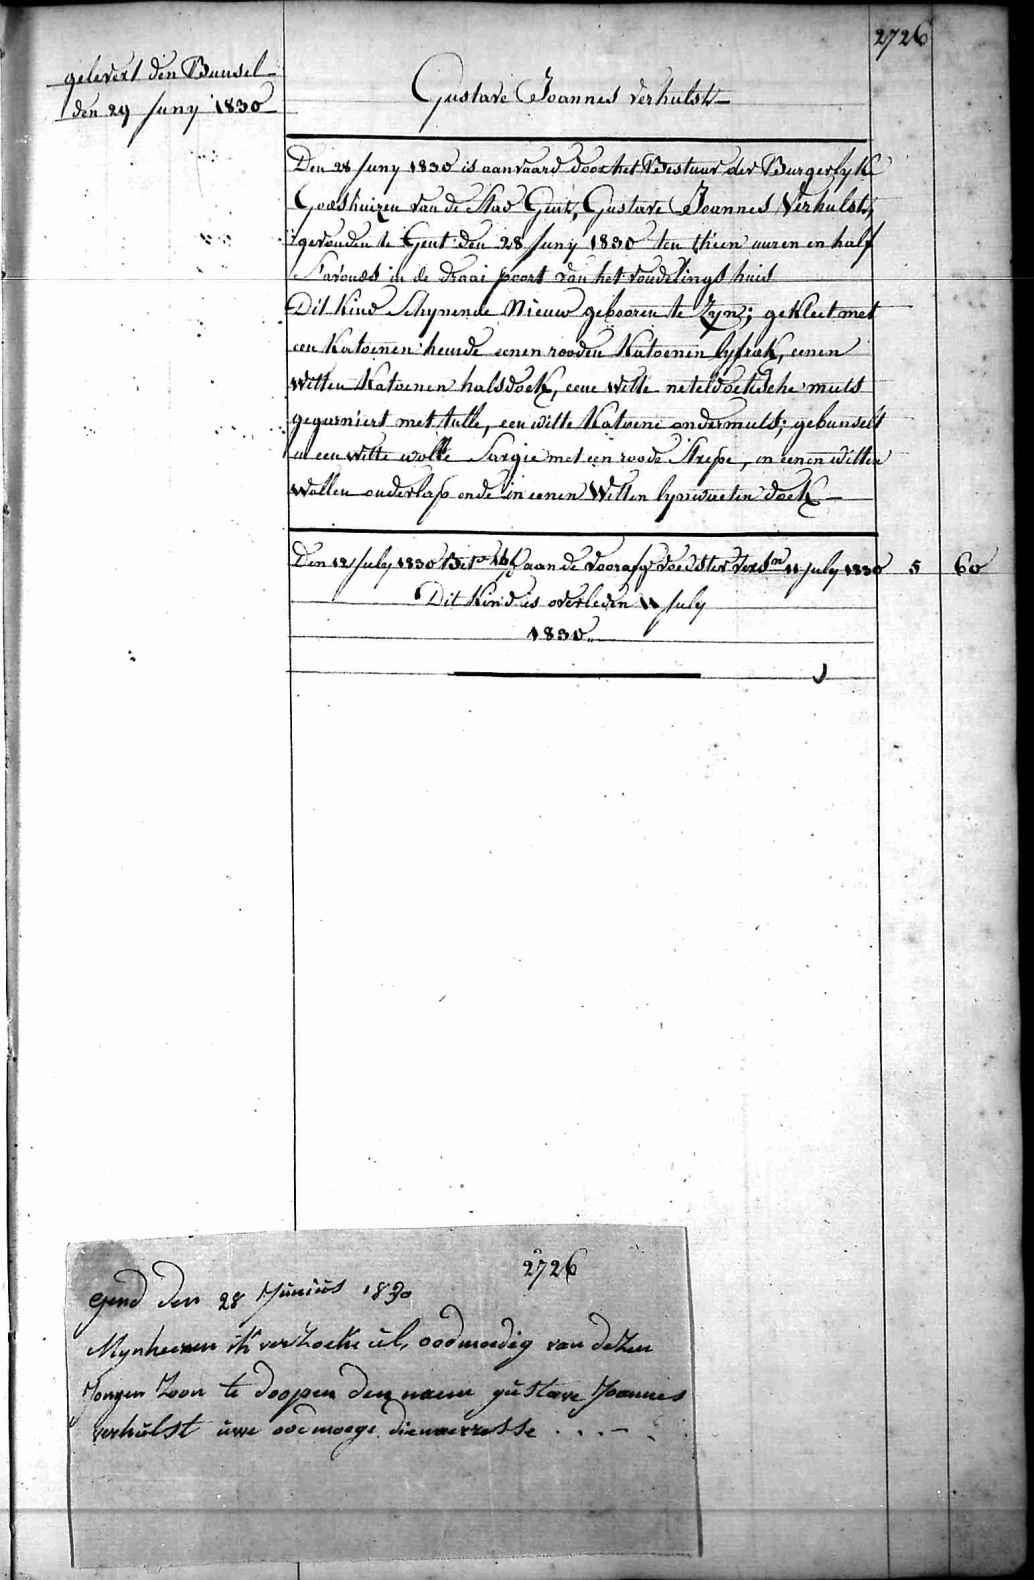 2726
gelevert den Bunsel
den 29 Juny 1830
Gustave Joannes Verhulst
Den 28 Juny 1830 is aanvaard door het Bestuur der Burgerlyke
Godshuizen van de Stad Gent, Gustave Joannes Verhulst,
gevonden te Gent den 28 Juny 1830 ten thien uuren en half
S'avonds in de draai poort van het vondelings huis
Dit Kind Schynende Nieuw gebooren te Zyn; gekleet met
een Katoenen hemde eenen rooden Katoenen lyfrok, eenen
witten Katoenen halsdoek, eene witte neteldoeksche muts
gegarniert met tulle, een witte Katoene ondermuts; gebunselt
in een witte wolle Sargie met een roode Strepe, en eenen witten
wollen onderlap ende in eenen Witten lynwaeten doek
Den 12 July 1830 aan de voorafge voedster 11 July 1830 5 60
Dit Kind is overleden 11 July
1830
2726
gend den 28 Junius 1830
Mynheeren ik verzoeke ul, oodmoedig van dezen
Jongen Zoon te doopen den naem gustave Joannes
verhülst uwe oodmoege dienaeresse . . . -